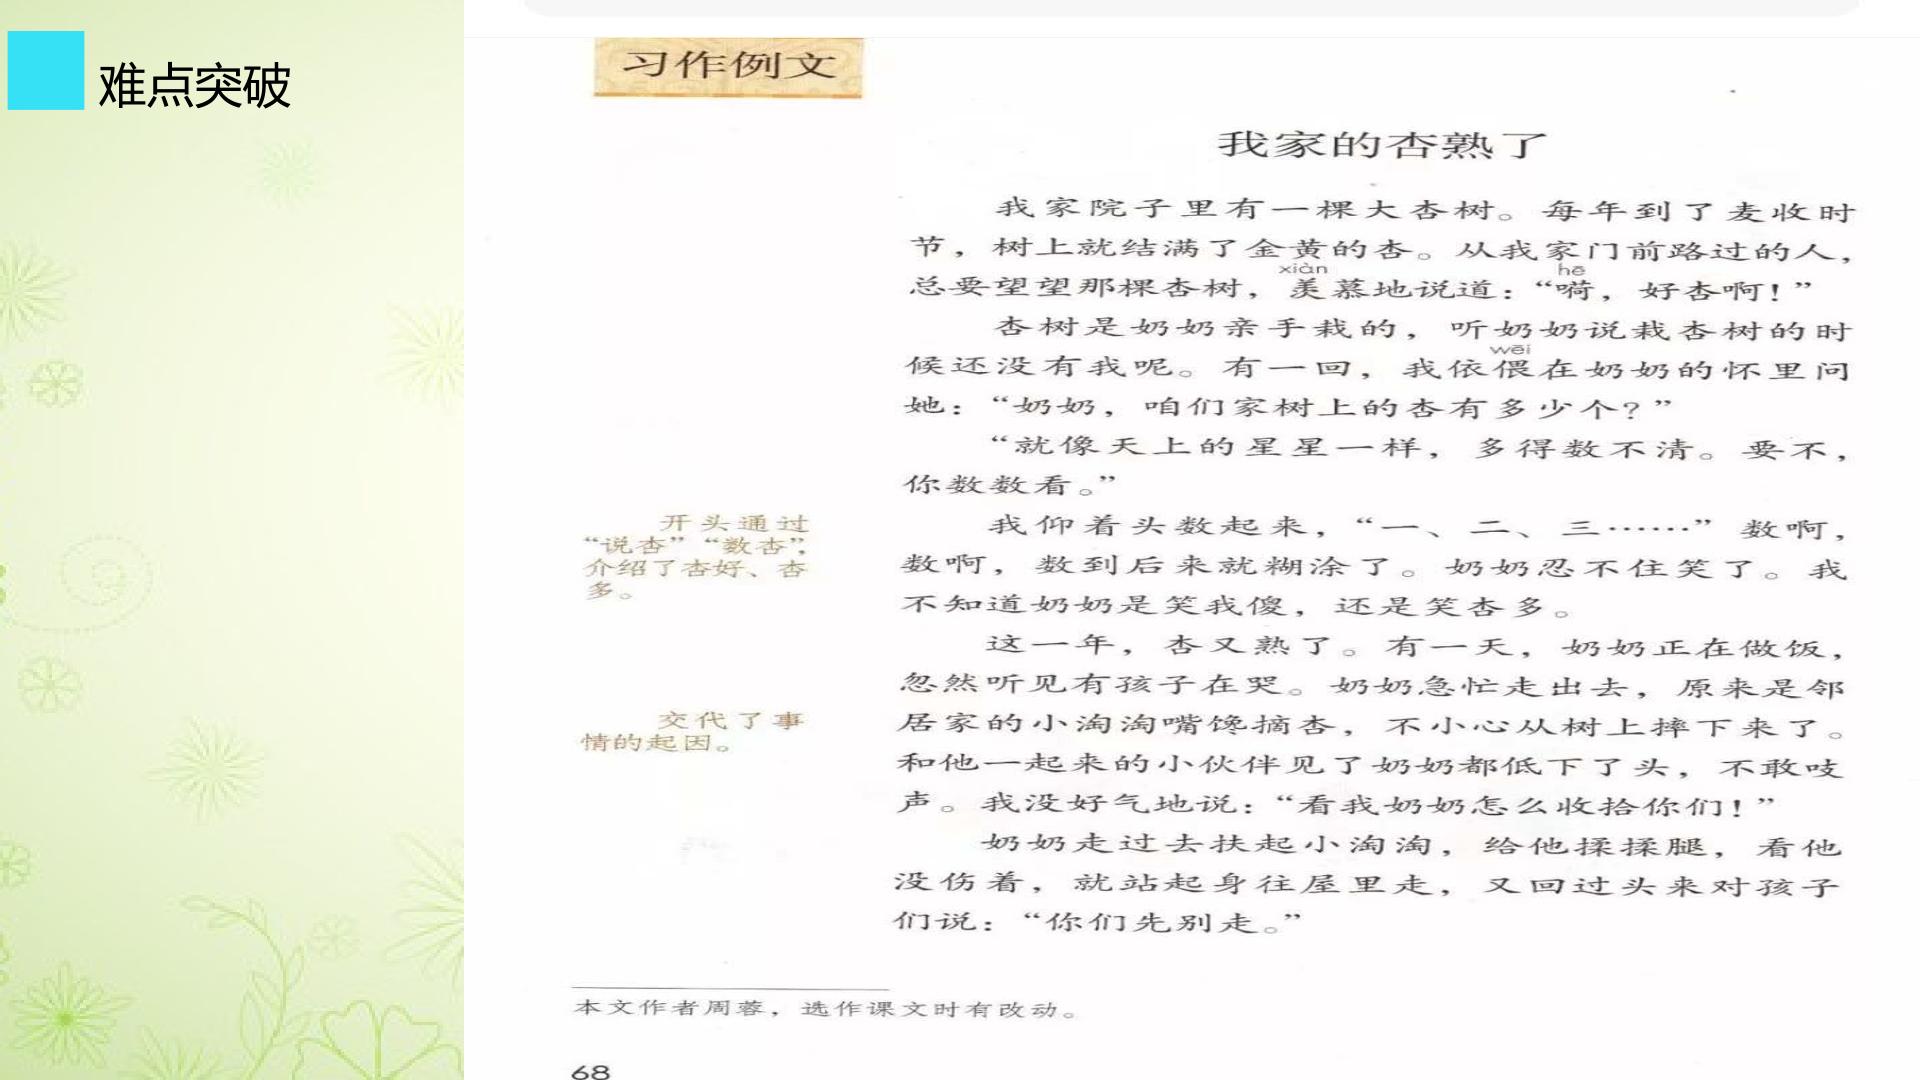 难点突破
习作例文
我家的杏熟了
我家院子里有一棵大杏树。每年到了麦收时
节，树上就结满了金黄的杏。从我家门前路过的人，
xiàn hē
总要望望那棵杏树，羡慕地说道：“嗬，好杏啊！”
杏树是奶奶亲手栽的，听奶奶说栽杏树的时
wēi
候还没有我呢。有一回，我依偎在奶奶的怀里问
她：“奶奶，咱们家树上的杏有多少个？”
“就像天上的星星一样，多得数不清。要不，
你数数看。”
我仰着头数起来，“一、二、三……”数啊，
数啊，数到后来就糊涂了。奶奶忍不住笑了。我
不知道奶奶是笑我傻，还是笑杏多。
开头通过
“说杏”“数杏”，
介绍了杏好、杏
多。
这一年，杏又熟了。有一天，奶奶正在做饭，
忽然听见有孩子在哭。奶奶急忙走出去，原来是邻
居家的小淘淘嘴馋摘杏，不小心从树上摔下来了。
和他一起来的小伙伴见了奶奶都低下了头，不敢吱
声。我没好气地说：“看我奶奶怎么收拾你们！”
交代了事
情的起因。
奶奶走过去扶起小淘淘，给他揉揉腿，看他
没伤着，就站起身往屋里走，又回过头来对孩子
们说：“你们先别走。”
本文作者周蓉，选作课文时有改动。
68